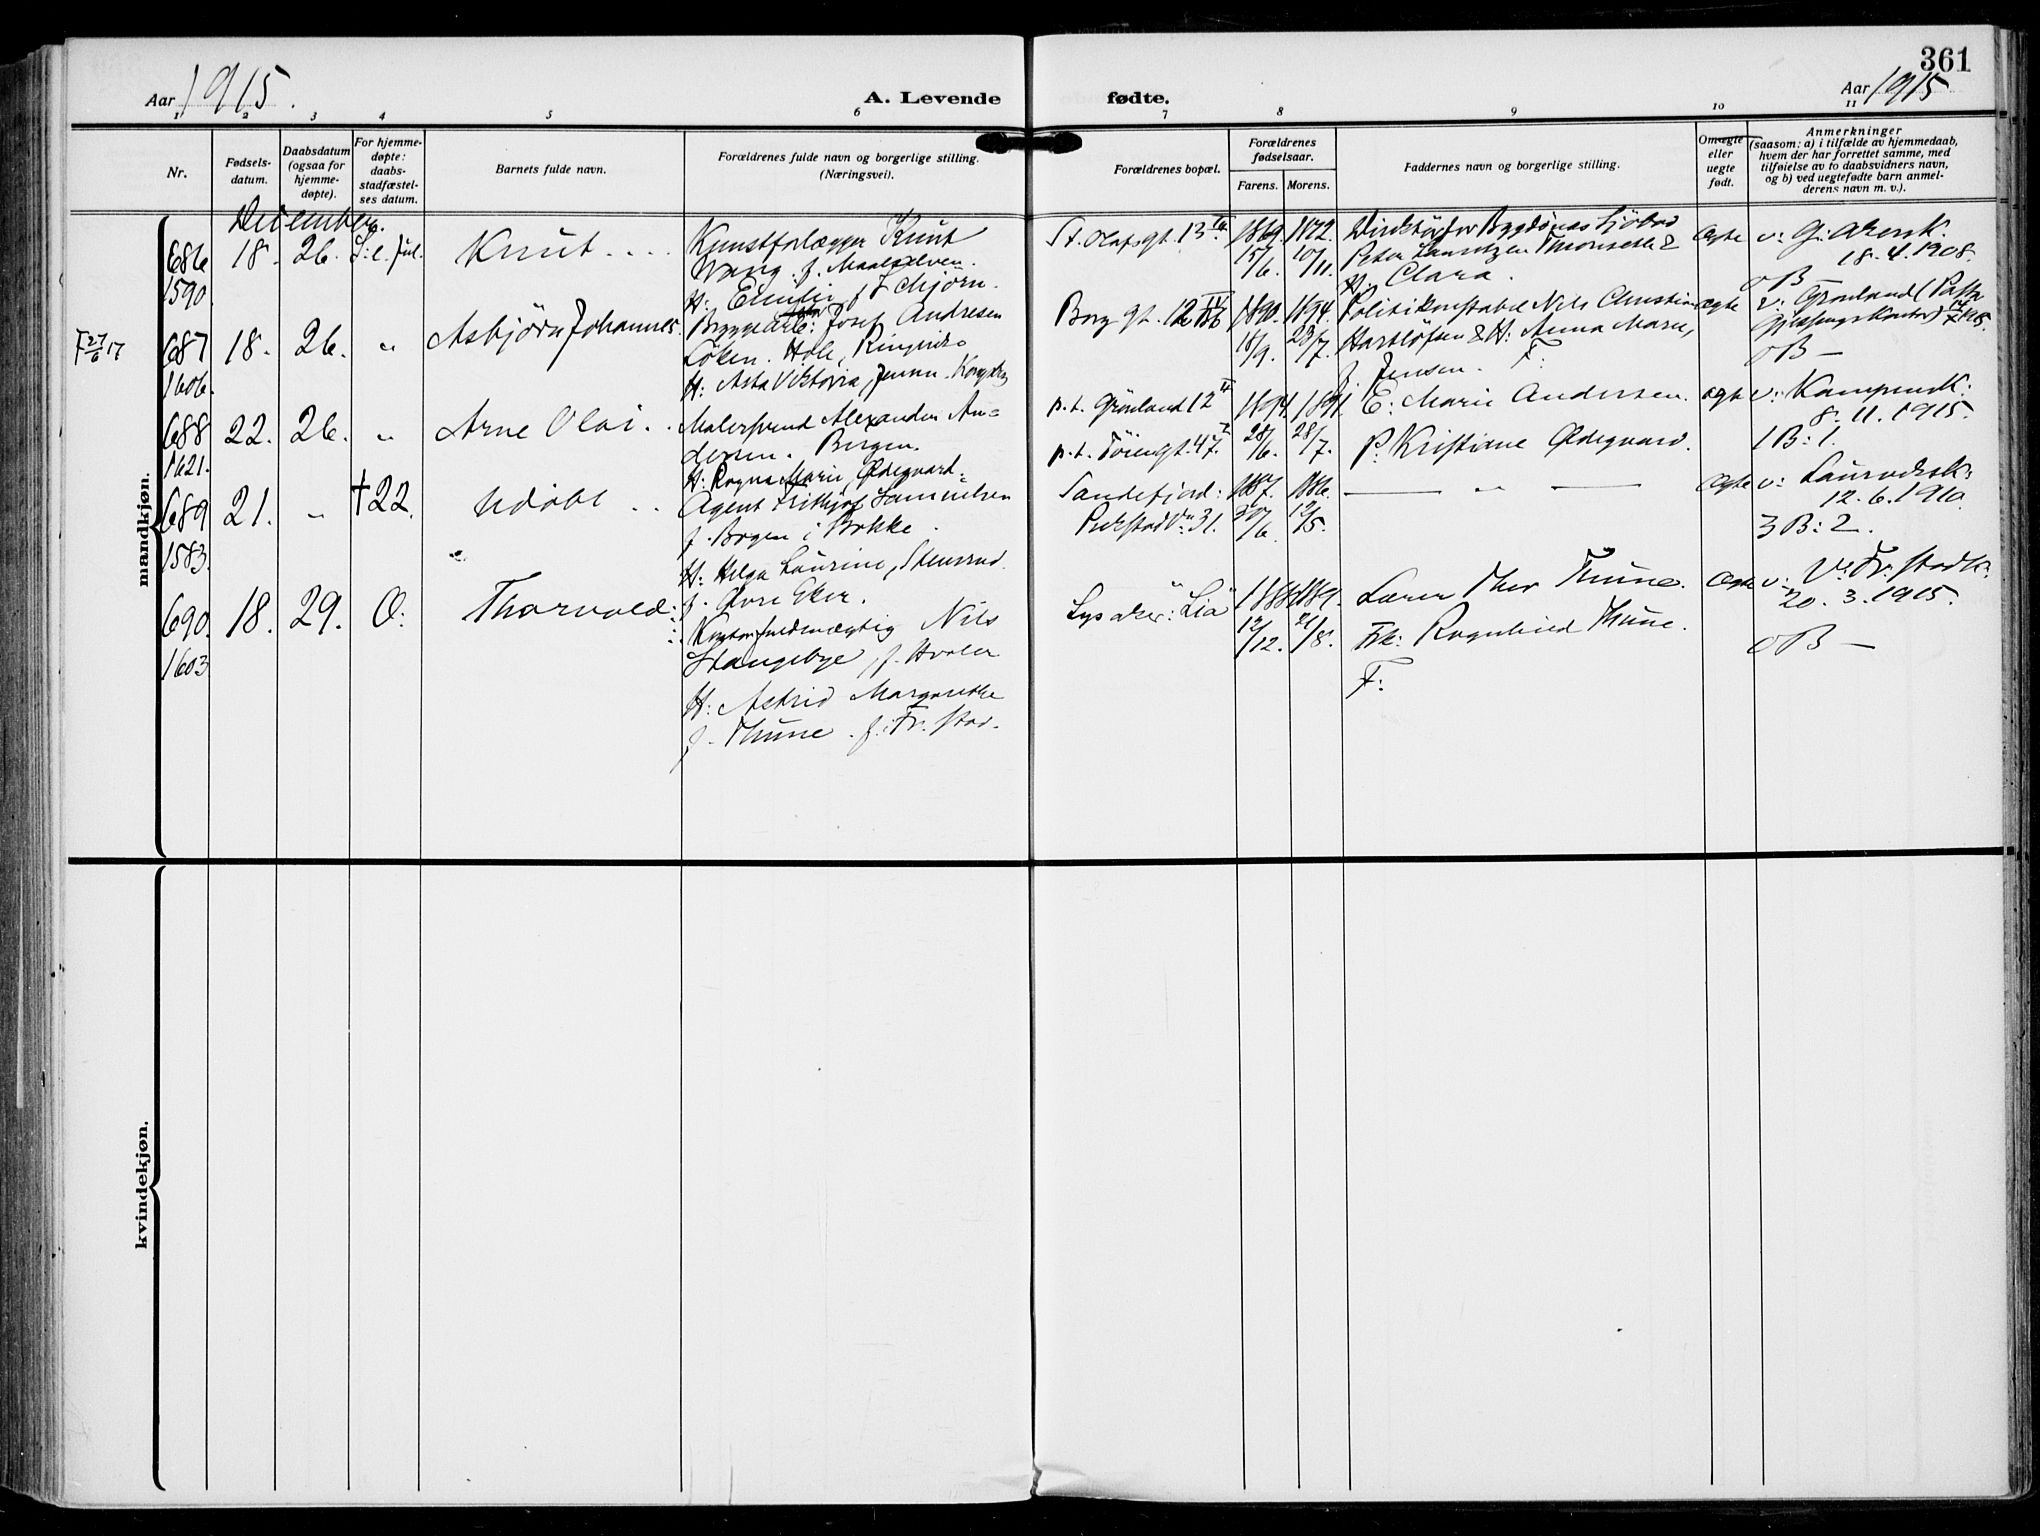 361
Aar 1915.
A. Levende fødte.
Aar 1915
1 2 3 4 5 6 7 8 9 10 11
Nr.
Fødsels-
datum.
Daabsdatum
(ogsaa for
hjemme-
døpte).
For hjemme-
døpte:
daabs-
stadfæstel-
ses datum.
Barnets fulde navn.
Forældrenes fulde navn og borgerlige stilling.
(Næringsvei).
Forældrenes bopæl.
Forældrenes
fødselsaar.
Farens. Morens.
Faddernes navn og borgerlige stilling.
Om egte
eller
uegte
født.
Anmerkninger
(saasom: a) i tilfælde av hjemmedaab,
hvem der har forrettet samme, med
tilføielse av to daabsvidners navn,
og b) ved uegtefødte barn anmel-
derens navn m. v.).
mandkjøn.
December.
686
1590.
18. 26. Knut
Kunstforlægger Knut
Wang. f. Maalselven.
St. Olafsgt. 13 IV
1869. 1872.
15/6. 10/11.
Peter Lauritzen
H: Clara.
Ægte
v: G: Akersk.
18. 4. 1908.
0 B —
F 27/6 17
687
1606.
18. 26. „ Asbjörn Johannes.
Josef Andresen
Löken. Hole, Ringerike
H: Asta Viktoria, Jensen.
Borg gt. 12
1890. 1894.
18/9. 23/7.
Politikonstabel Nils Christian
& H: Anna Marie,
f. Jensen. F:
ægte
v: Grønland
0 B —
688
1621.
22. 26. „ Arne Olai.
Malersvend Alexander An-
dersen. Bergen.
H: Ragna Marie, Ødegaard
p.t. Grønland 12 II
p.t. Töiengt. 47 I
1894. 1891
28/6. 28/7.
E: Marie Andersen.
P: Kristiane Ødegaard.
ægte
v: Kampensk:
8. 11. 1915.
1 B: 1.
689
1583.
21. „ † 22. Udöbt
Agent Frithjof Samuelsen
f. Bogen i Bokke.
H: Helga Laurine, Stensrud
f. Övre Eker.
Sandefjord:
1887. 1886.
30/6. 12/5.
— „ —
Ægte
v: Laurvdsk:
12. 6. 1910.
3 B: 2.
690.
1603
18. 29. O: Thorvald:
Kontorfuldmægtig Nils
Stangebye, f. Hvaler
H: Astrid Margarethe
f. Thune. f: Fr. stad.
Lysaker: "Lia"
1888. 1889.
12/12. 21/8.
Lærer Thor Thune.
Frk: Ragnhild Thune.
F:
Ægte
v: V: Fr. stadk:
20. 3. 1915.
0 B —
kvindekjøn.